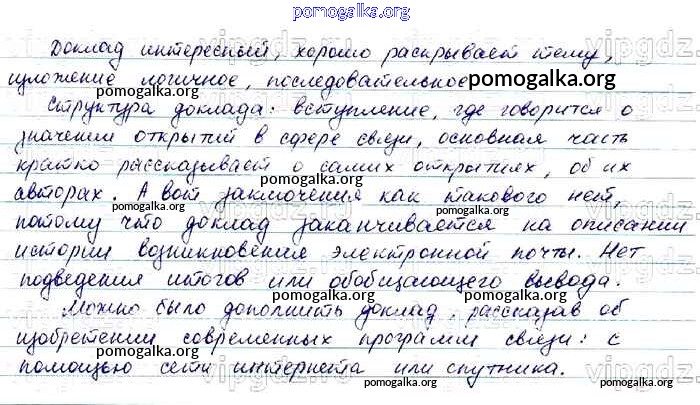 pomogalka.org
Доклад интересный, хорошо раскрывает тему,
изложение логичное, последовательное pomogalka.org
Структура доклада: вступление, где говорится о
значении открытий в сфере связи, основная часть
кратко рассказывает о самих открытиях, об их
pomogalka.org pomogalka.org
авторах. А вот заключения как такового нет,
потому что доклад заканчивается на описании
pomogalka.org
истории возникновения электронной почты. Нет
подведения итогов или обобщающего вывода.
pomogalka.org
Можно было дополнить доклад, рассказав об
pomogalka.org
изобретении современных программ связи: с
pomogalka.org
помощью сети интернета или спутника.
pomogalka.org pomogalka.org